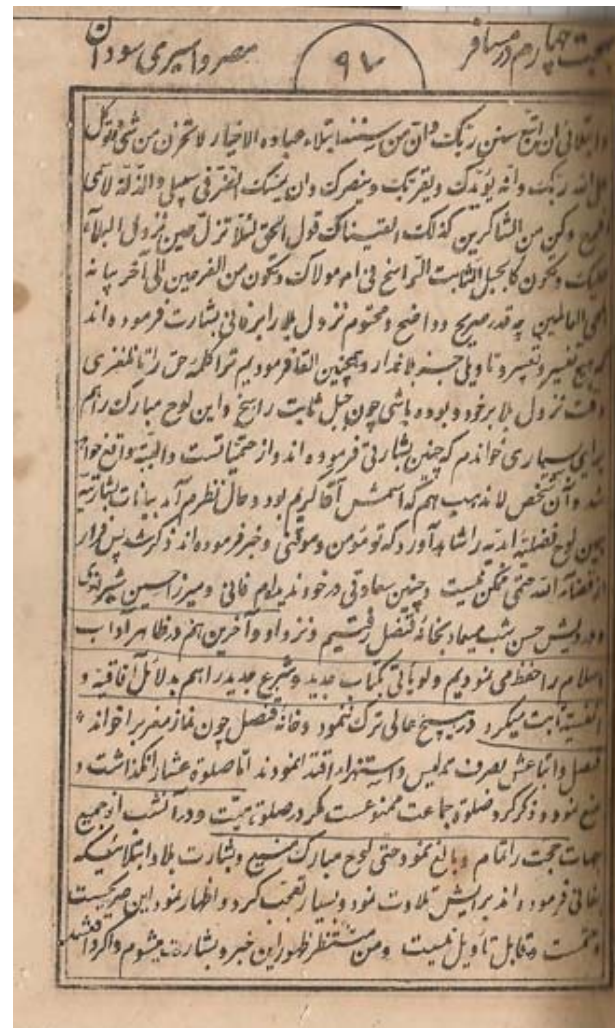 بهجت چهارم در مسافر ۹۷ مصر و اسیری سودان
و ابتلائی ان اتبع سنن ربک و ان من سننه ابتلاء عباده الاخیار لا تحزن من شئ فتوکل
علی الله ربک و انه یؤیدک و یقربک و ینصرک و ان یمسک الضر فی سبیلی و الذلة لاسمی
افرح و کن من الشاکرین کذلک القیناک قول الحق لئلا تزل حین نزول البلاء
و تکون کالجبل الثابت الراسخ فی امر مولاک و تکون من الفرحین الی آخر بیانه
العالمین چه قدر صریح و واضح و محتوم نزول بلا را بر فانی بشارت فرموده اند
که هیچ تفسیر و تعبیر و تاویلی جز بلا ندارد و همچنین القا فرمودیم ترا کلمه حق را تا نلغزی
وقت نزول بلا بر خود و بوده باشی چون جبل ثابت راسخ و این لوح مبارک را هم
برای بسیاری خواندم که چنین بشارتی فرموده اند و از حتمیاتست و البته واقع خواهد
شد و آن شخص لا مذهب هم که اسمش آقا کریم بود و حال نظرم آمد بیانات بشارتیه
همین لوح فضلیه ابدیه را شاهد آورد که تو مؤمن و موقنی و خبر فرموده اند ذکر شد پس فرار
از قضاء الله حتمی ممکن نیست و چنین سعادتی در خود ندیدم فانی و میرزا حسین شیرازی
و درویش حسن شب میعاد بخانه قنسل رفتیم و نزد او و آخرین هم در ظاهر آداب
اسلام را حفظ می نمودیم و لو یأتی بکتاب جدید و شرع جدید را هم بدلائل آفاقیه و
انفسیه ثابت میکرد در هیچ حالی ترک ننمود و خانه قنسل چون نماز مغرب را خواند
قنسل و اتباعش بصرف تدلیس و استهزاء اقتدا نمودند اما صلوة عشا را نگذاشت و
منع نمود و ذکر کرد صلوة جماعت ممنوعست مگر در صلوة میت و در آنشب از جمیع
جهات حجت را تمام و بالغ نمود حتی لوح مبارک منیع و بشارت بلا و ابتلائیکه
بفانی فرموده اند برایش تلاوت نمود و بسیار تعجب کرد و اظهار نمود این صریحست
و حتمست و قابل تاویل نیست و من منتظر ظهور این خبر و بشارت میشوم و اگر واقع شد